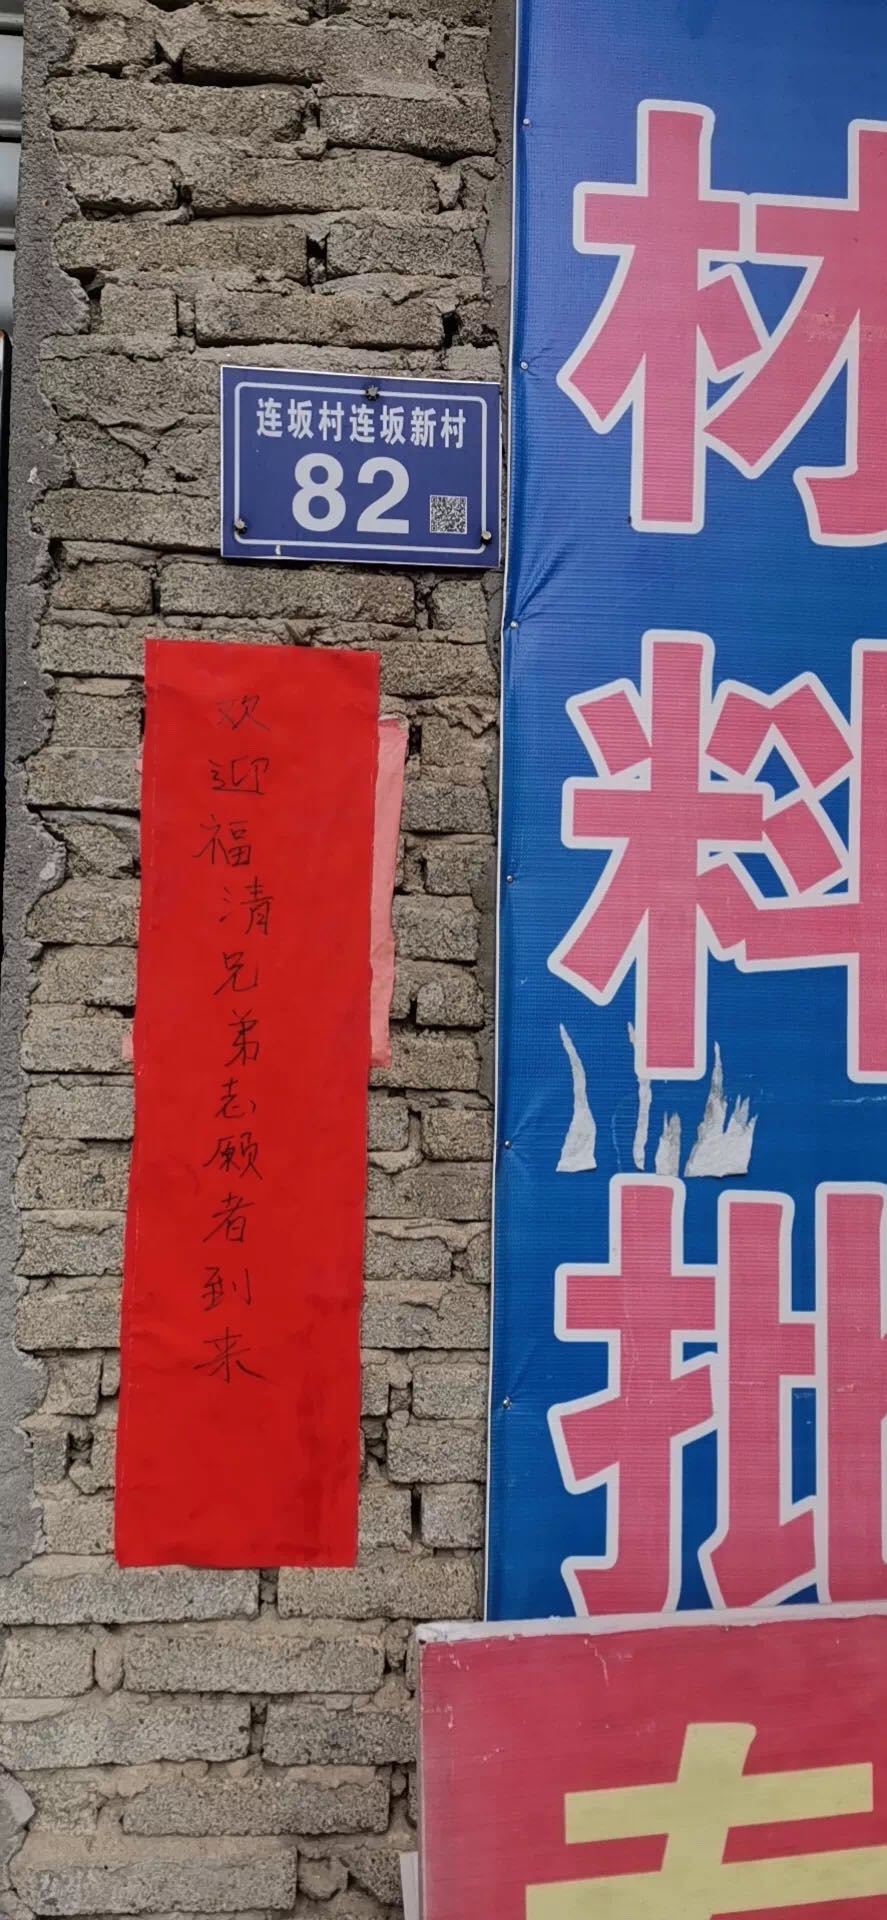 连坂村连坂新村
82
欢迎福清兄弟志愿者到来
材料批
专